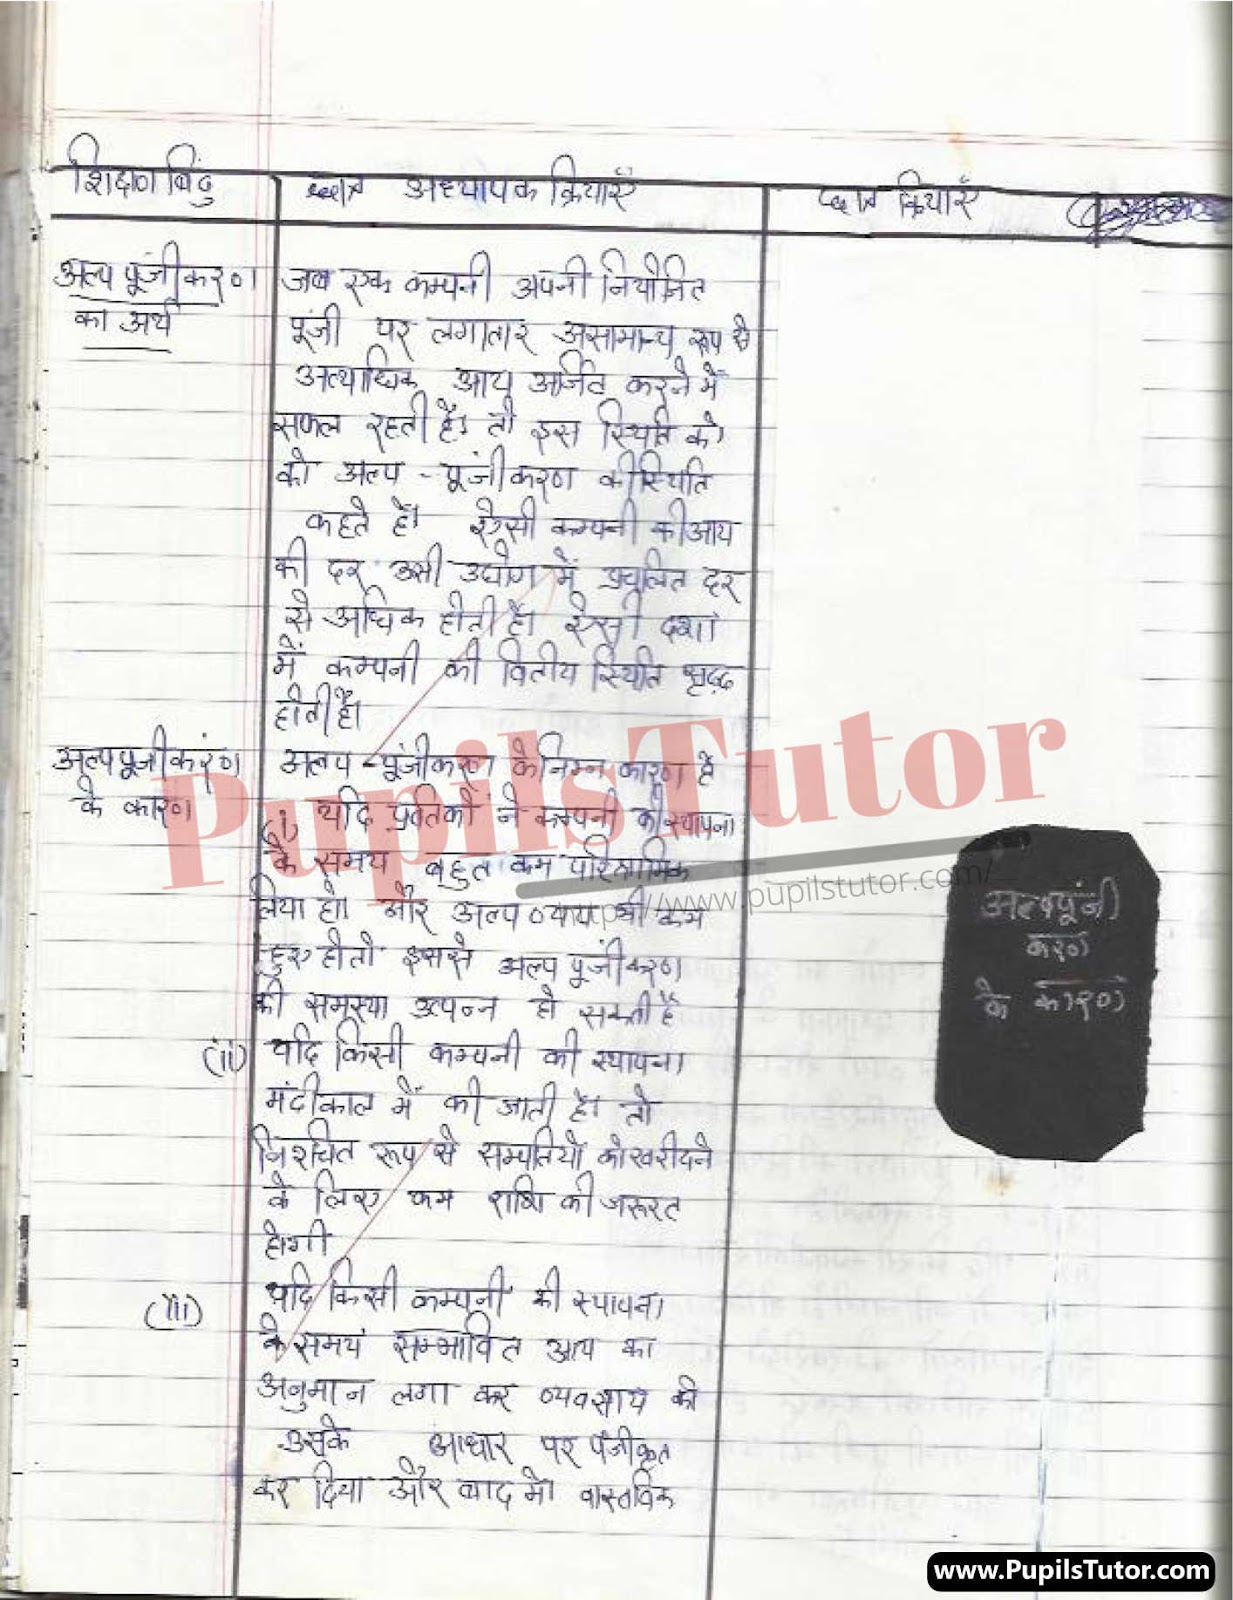 शिक्षण बिंदु
छात्र अध्यापक क्रियाएँ
छात्र क्रियाएँ
अल्प पूंजीकरण
का अर्थ
जब एक कम्पनी अपनी नियोजित
पूंजी पर लगातार असामान्य रूप से
अत्याधिक आय अर्जित करने में
सफल रहती है। तो इस स्थिति को
को अल्प - पूंजीकरण की स्थिति
कहते हैं। ऐसी कम्पनी की आय
की दर उसी उद्योग में प्रचलित दर
से अधिक होती है। ऐसी दशा
में कम्पनी की वितीय स्थिति
होती है।
अल्प पूंजीकरण
के कारण
अल्प - पूंजीकरण के निम्न कारण है
(i) यदि प्रवर्तकों ने कम्पनी की स्थापना
के समय बहुत कम पारिश्रमिक
लिया हो। और अल्प व्यय भी कम
हुए हो तो इससे अल्प पूंजीकरण
की समस्या उत्पन्न हो सकती है
(ii) यदि किसी कम्पनी की स्थापना
मंदीकाल में की जाती है। तो
निश्चित रूप से सम्पतियों को खरीदने
के लिए कम राशि की जरूरत
होगी
(iii) यदि किसी कम्पनी की स्थापना
के समय सम्भावित आय का
अनुमान लगा कर व्यवसाय को
उसके आधार पर पंजीकृत
कर दिया और बाद में वास्तविक
अल्प पूंजी
करण
के कारण
PupilsTutor
http://www.pupilstutor.com/
www.PupilsTutor.com